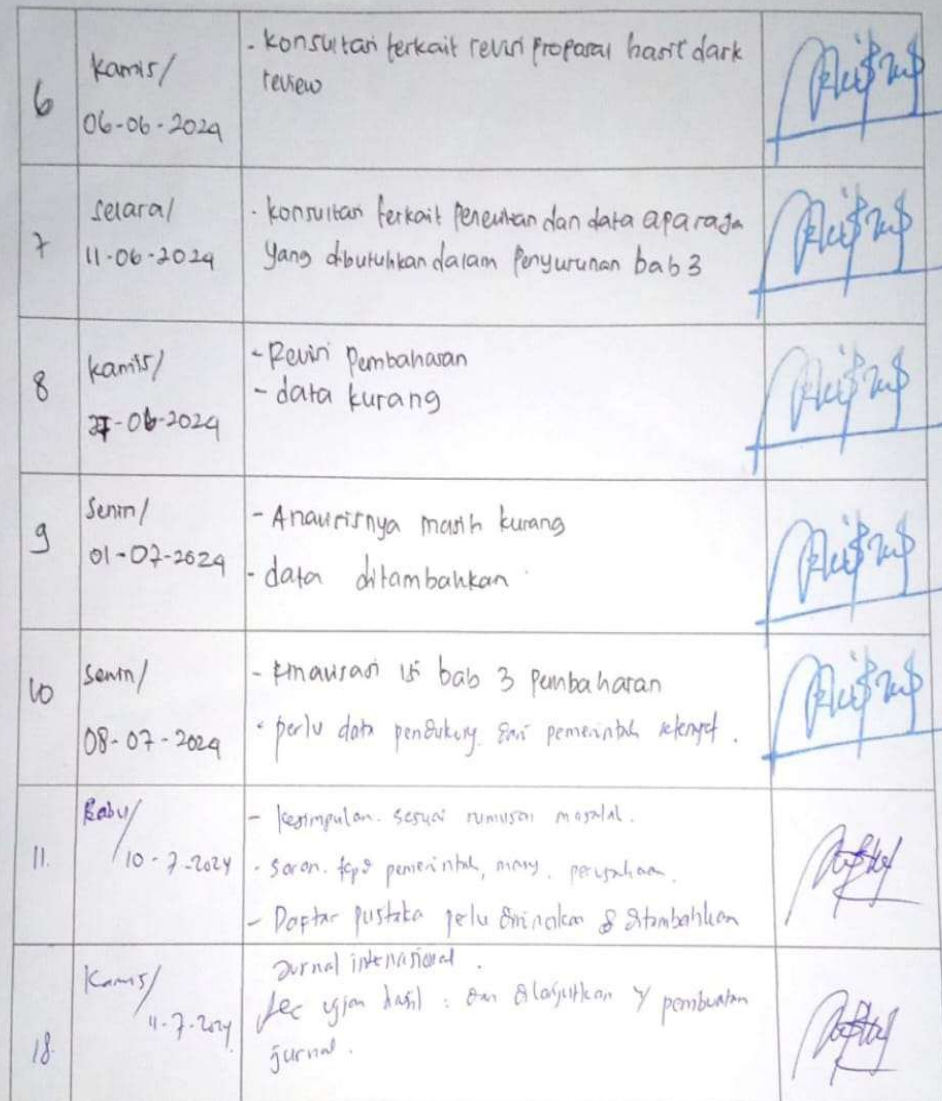 6
Kamis/
06-06-2024
- Konsultasi terkait revisi proposal hasil dark
review
7
Selasa/
11-06-2024
- Konsultasi terkait Penelitian dan data apa saja
yang dibutuhkan dalam Penyusunan bab 3
8
Kamis/
27-06-2024
- Revisi Pembahasan
- data kurang
9
Senin/
01-07-2024
- Analisisnya masih kurang
- data ditambahkan
10
Senin/
08-07-2024
- isi bab 3 Pembahasan
- perlu data pendukung dari pemerintah setempat.
11.
Rabu/
10-7-2024
- Kesimpulan. sesuai rumusan masalah.
- Saran. kpd pemerintah, masy, perusahaan.
- Daftar pustaka perlu & ditambahkan
Jurnal internasional.
18.
Kamis/
11-7-2024
Acc ujian hasil : dan dilanjutkan pembuatan
jurnal.